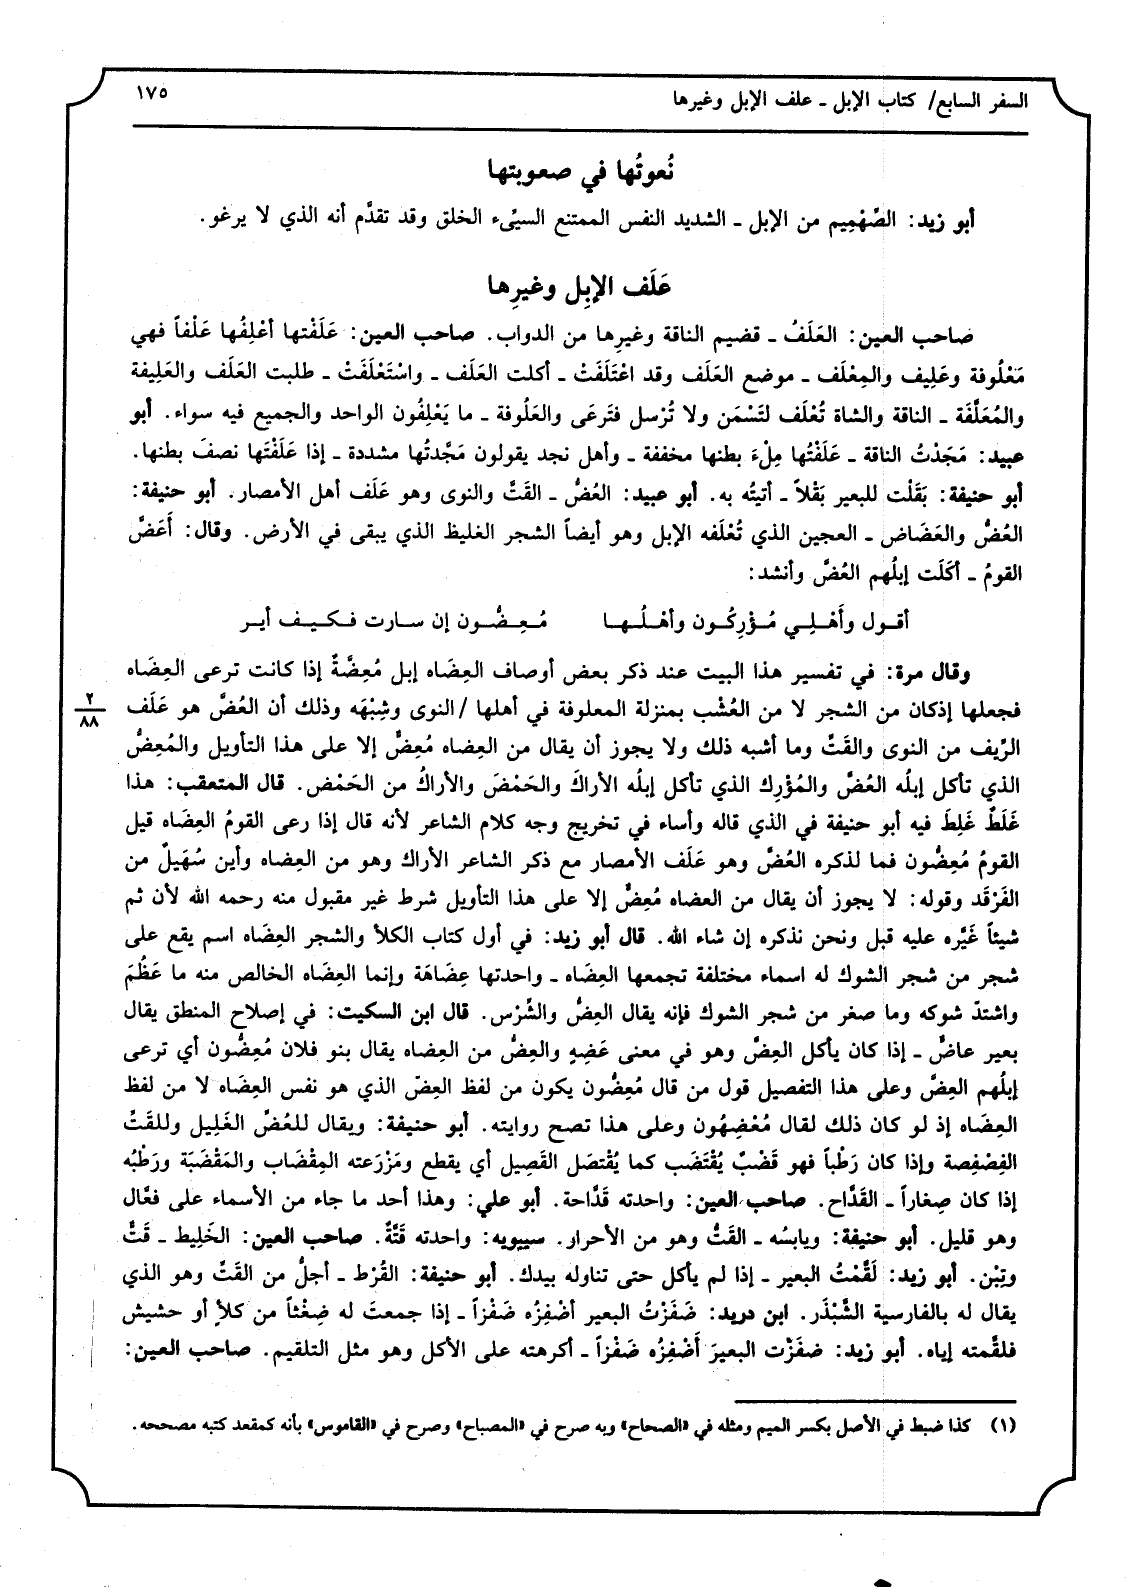 السفر السابع/ كتاب الإبل ـ علف الإبل وغيرها ١٧٥
نُعوتُها في صعوبتها
أبو زيد: الصِّهْمِيم من الإبل ـ الشديد النفس الممتنع السيِّىء الخلق وقد تقدَّم أنه الذي لا يرغو.
عَلَف الإبِل وغيرِها
صاحب العين: العَلَفُ ـ قضيم الناقة وغيرِها من الدواب. صاحب العين: عَلَفْتها أعْلِفُها عَلْفاً فهي
مَعْلُوفة وعَلِيف والمِعْلَف ـ موضع العَلَف وقد اعْتَلَفَتْ ـ أكلت العَلَف ـ واسْتَعْلَفَتْ ـ طلبت العَلَف والعَلِيفة
والمُعَلَّفَة ـ الناقة والشاة تُعْلَف لتَسْمَن ولا تُرْسل فتَرعَى والعَلُوفة ـ ما يَعْلِفُون الواحد والجميع فيه سواء. أبو
عبيد: مَجَدْتُ الناقة ـ عَلَفْتُها مِلْءَ بطنها مخففة ـ وأهل نجد يقولون مَجَّدتُها مشددة ـ إذا عَلَفْتَها نصفَ بطنها.
أبو حنيفة: بَقَلْت للبعير بَقْلاً ـ أتيتُه به. أبو عبيد: العُضُّ ـ القَتُّ والنوى وهو عَلَف أهل الأمصار. أبو حنيفة:
العُضُّ والعَضَاض ـ العجين الذي تُعْلَفه الإبل وهو أيضاً الشجر الغليظ الذي يبقى في الأرض. وقال: أَعَضَّ
القومُ ـ أكَلَت إبلُهم العُضَّ وأنشد:
أقول وأَهْلِي مُؤْرِكُون وأهْلُها مُعِضُّون إن سارت فكيف أير
وقال مرة: في تفسير هذا البيت عند ذكر بعض أوصاف العِضَاه إبل مُعِضَّةٌ إذا كانت ترعى العِضَاه
فجعلها إذكان من الشجر لا من العُشْب بمنزلة المعلوفة في أهلها /النوى وشِبْهَه وذلك أن العُضَّ هو عَلَف
٢
٨٨
الرِّيف من النوى والقَتِّ وما أشبه ذلك ولا يجوز أن يقال من العِضاه مُعِضٌّ إلا على هذا التأويل والمُعِضُّ
الذي تأكل إبلُه العُضَّ والمُؤْرِك الذي تأكل إبلُه الأراكَ والحَمْضَ والأراكُ من الحَمْض. قال المتعقب: هذا
غَلَطٌ غَلِطَ فيه أبو حنيفة في الذي قاله وأساء في تخريج وجه كلام الشاعر لأنه قال إذا رعى القومُ العِضَاه قيل
القومُ مُعِضُّون فما لذكره العُضَّ وهو عَلَف الأمصار مع ذكر الشاعر الأراك وهو من العِضاه وأين سُهَيلٌ من
الفَرْقَد وقوله: لا يجوز أن يقال من العضاه مُعِضٌّ إلا على هذا التأويل شرط غير مقبول منه رحمه الله لأن ثم
شيئاً غَيَّره عليه قبل ونحن نذكره إن شاء الله. قال أبو زيد: في أول كتاب الكلأ والشجر العِضَاه اسم يقع على
شجر من شجر الشوك له اسماء مختلفة تجمعها العِضَاه ـ واحدتها عِضَاهَة وإنما العِضَاه الخالص منه ما عَظُمَ
واشتدّ شوكه وما صغر من شجر الشوك فإنه يقال العِضُّ والشِّرْس. قال ابن السكيت: في إصلاح المنطق يقال
بعير عاضٌّ ـ إذا كان يأكل العِضَّ وهو في معنى عَضِهٍ والعِضُّ من العِضاه يقال بنو فلان مُعِضُّون أي ترعى
إبلُهم العِضَّ وعلى هذا التفصيل قول من قال مُعِضُّون يكون من لفظ العِضّ الذي هو نفس العِضَاه لا من لفظ
العِضَاه إذ لو كان ذلك لقال مُعْضِهُون وعلى هذا تصح روايته. أبو حنيفة: ويقال للعُضِّ الغَلِيل وللقَتِّ
الفِصْفِصة وإذا كان رَطْباً فهو قَضْبٌ يُقْتَضَب كما يُقْتَصَل القَصِيل أي يقطع ومَزْرَعته المِقْضَاب والمَقْضَبَة ورَطْبُه
إذا كان صِغاراً ـ القَدَّاح. صاحب العين: واحدته قَدَّاحة. أبو علي: وهذا أحد ما جاء من الأسماء على فعَّال
وهو قليل. أبو حنيفة: ويابسُه ـ القَتُّ وهو من الأحرار. سيبويه: واحدته قَتَّةٌ. صاحب العين: الخَلِيط ـ قَتٌّ
وتِبْن. أبو زيد: لَقَّمْتُ البعير ـ إذا لم يأكل حتى تناوله بيدك. أبو حنيفة: القُرْط ـ أجلُّ من القَتِّ وهو الذي
يقال له بالفارسية الشَّبْذَر. ابن دريد: ضَفَزْتُ البعير أضْفِزُه ضَفْزاً ـ إذا جمعتَ له ضِغْثاً من كلأٍ أو حشيش
فلقَّمته إياه. أبو زيد: ضفَزْت البعيرَ أَضْفِزُه ضَفْزاً ـ أكرهته على الأكل وهو مثل التلقيم. صاحب العين:
(١) كذا ضبط في الأصل بكسر الميم ومثله في «الصحاح» وبه صرح في «المصباح» وصرح في «القاموس» بأنه كمقعد كتبه مصححه.